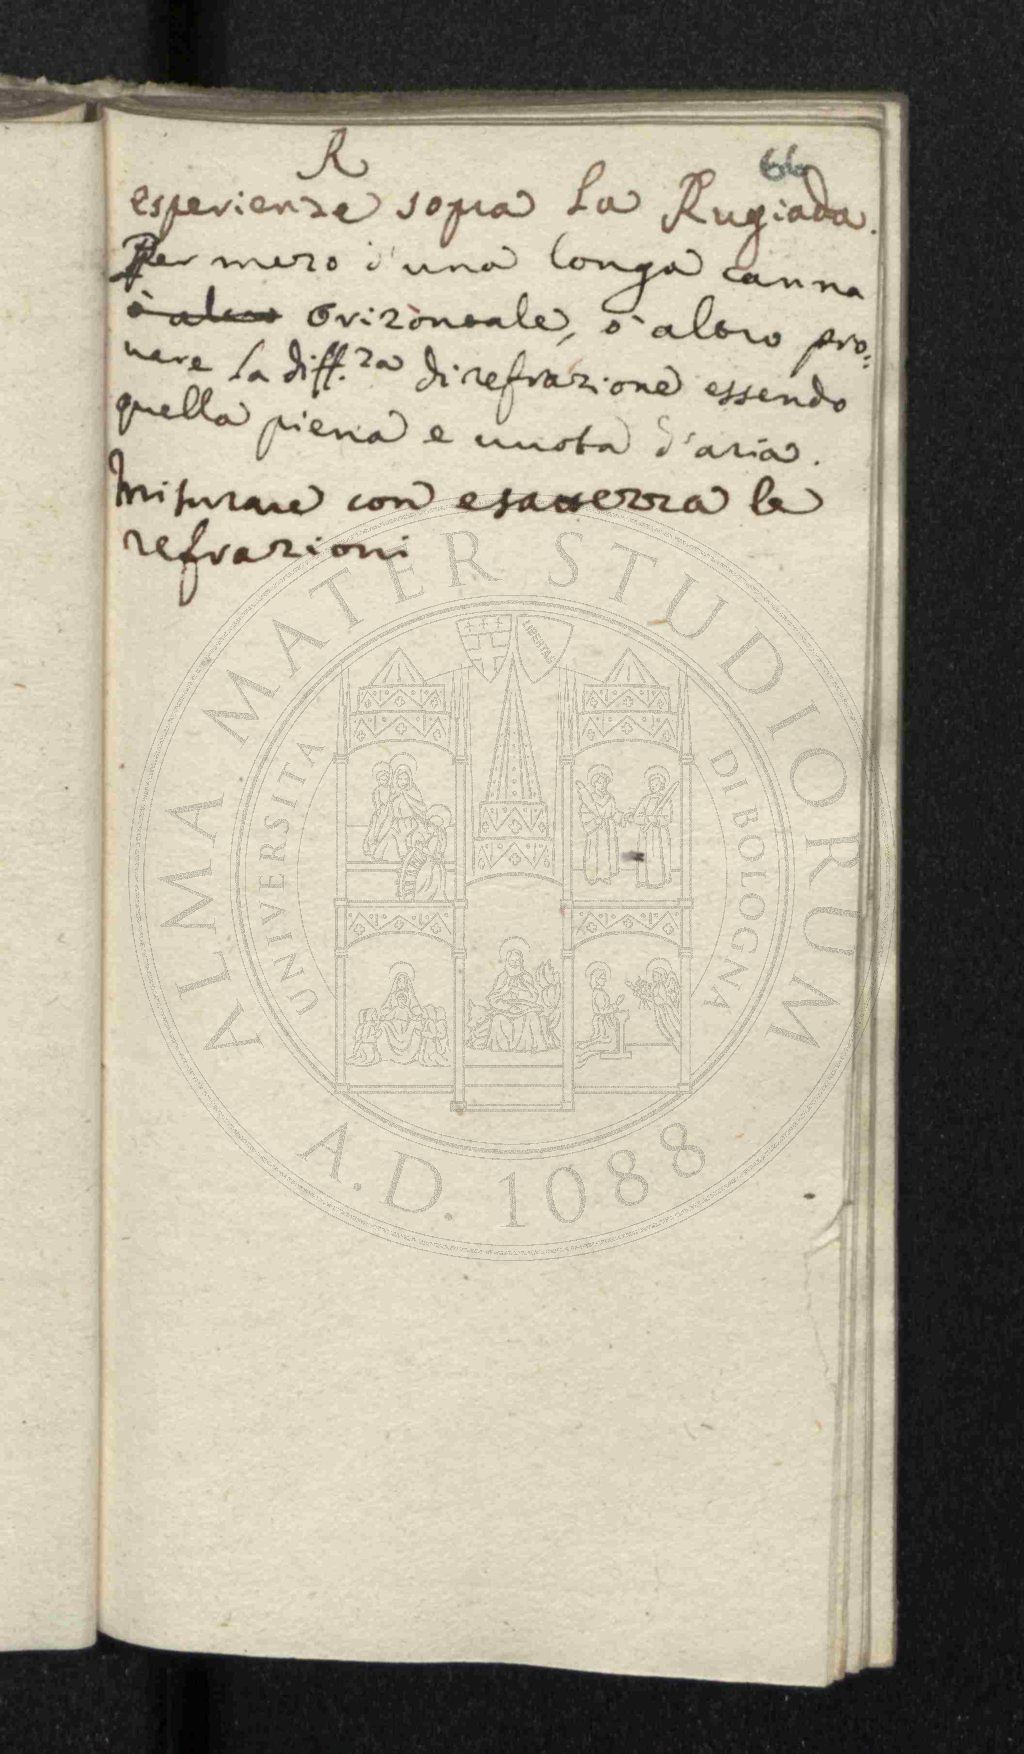 R
66
esperienze sopra la Rugiada.
Per mezo d'una longa canna
ò altro Orizontale, ò altro pro:
vare la diff.za di refrazione essendo
quella piena e vuota d'aria.
Misurare con esattezza le
refrazioni
ALMA MATER STUDIORUM
UNIVERSITA DI BOLOGNA
LIBERTAS
A.D. 1088